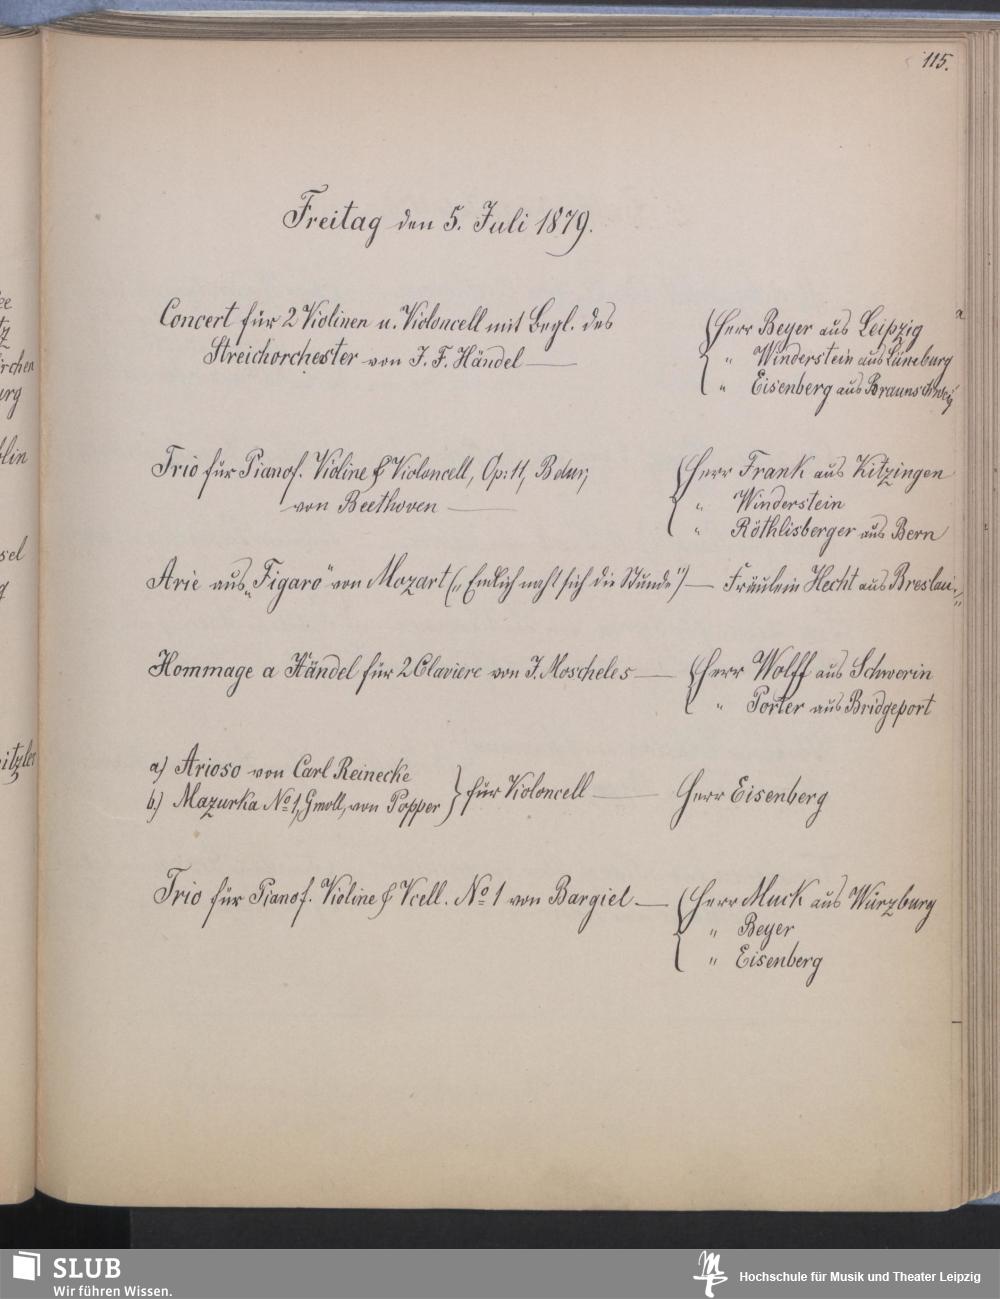 115.
Freitag den 5. Juli 1879.
Concert für 2 Violinen u. Violoncell mit Begl. des
Streichorchester von J. F. Händel —
Herr Beyer aus Leipzig
" Winderstein aus Lüneburg
" Eisenberg aus Braunschweig
Trio für Pianof. Violine & Violoncell, Op: 11, Bdur,
von Beethoven —
Herr Frank aus Kitzingen
" Winderstein
" Röthlisberger aus Bern
Arie aus „Figaro" von Mozart („Endlich naht sich die Stunde") — Fräulein Hecht aus Breslau.
Hommage a Händel für 2 Claviere von J. Moscheles —
Herr Wolff aus Schwerin
" Porter aus Bridgeport
a) Arioso von Carl Reinecke
b) Mazurka No 1, Gmoll, von Popper
für Violoncell — Herr Eisenberg
Trio für Pianof. Violine & Vcell. No 1 von Bargiel —
Herr Muck aus Würzburg
" Beyer
" Eisenberg
SLUB
Wir führen Wissen.
Hochschule für Musik und Theater Leipzig